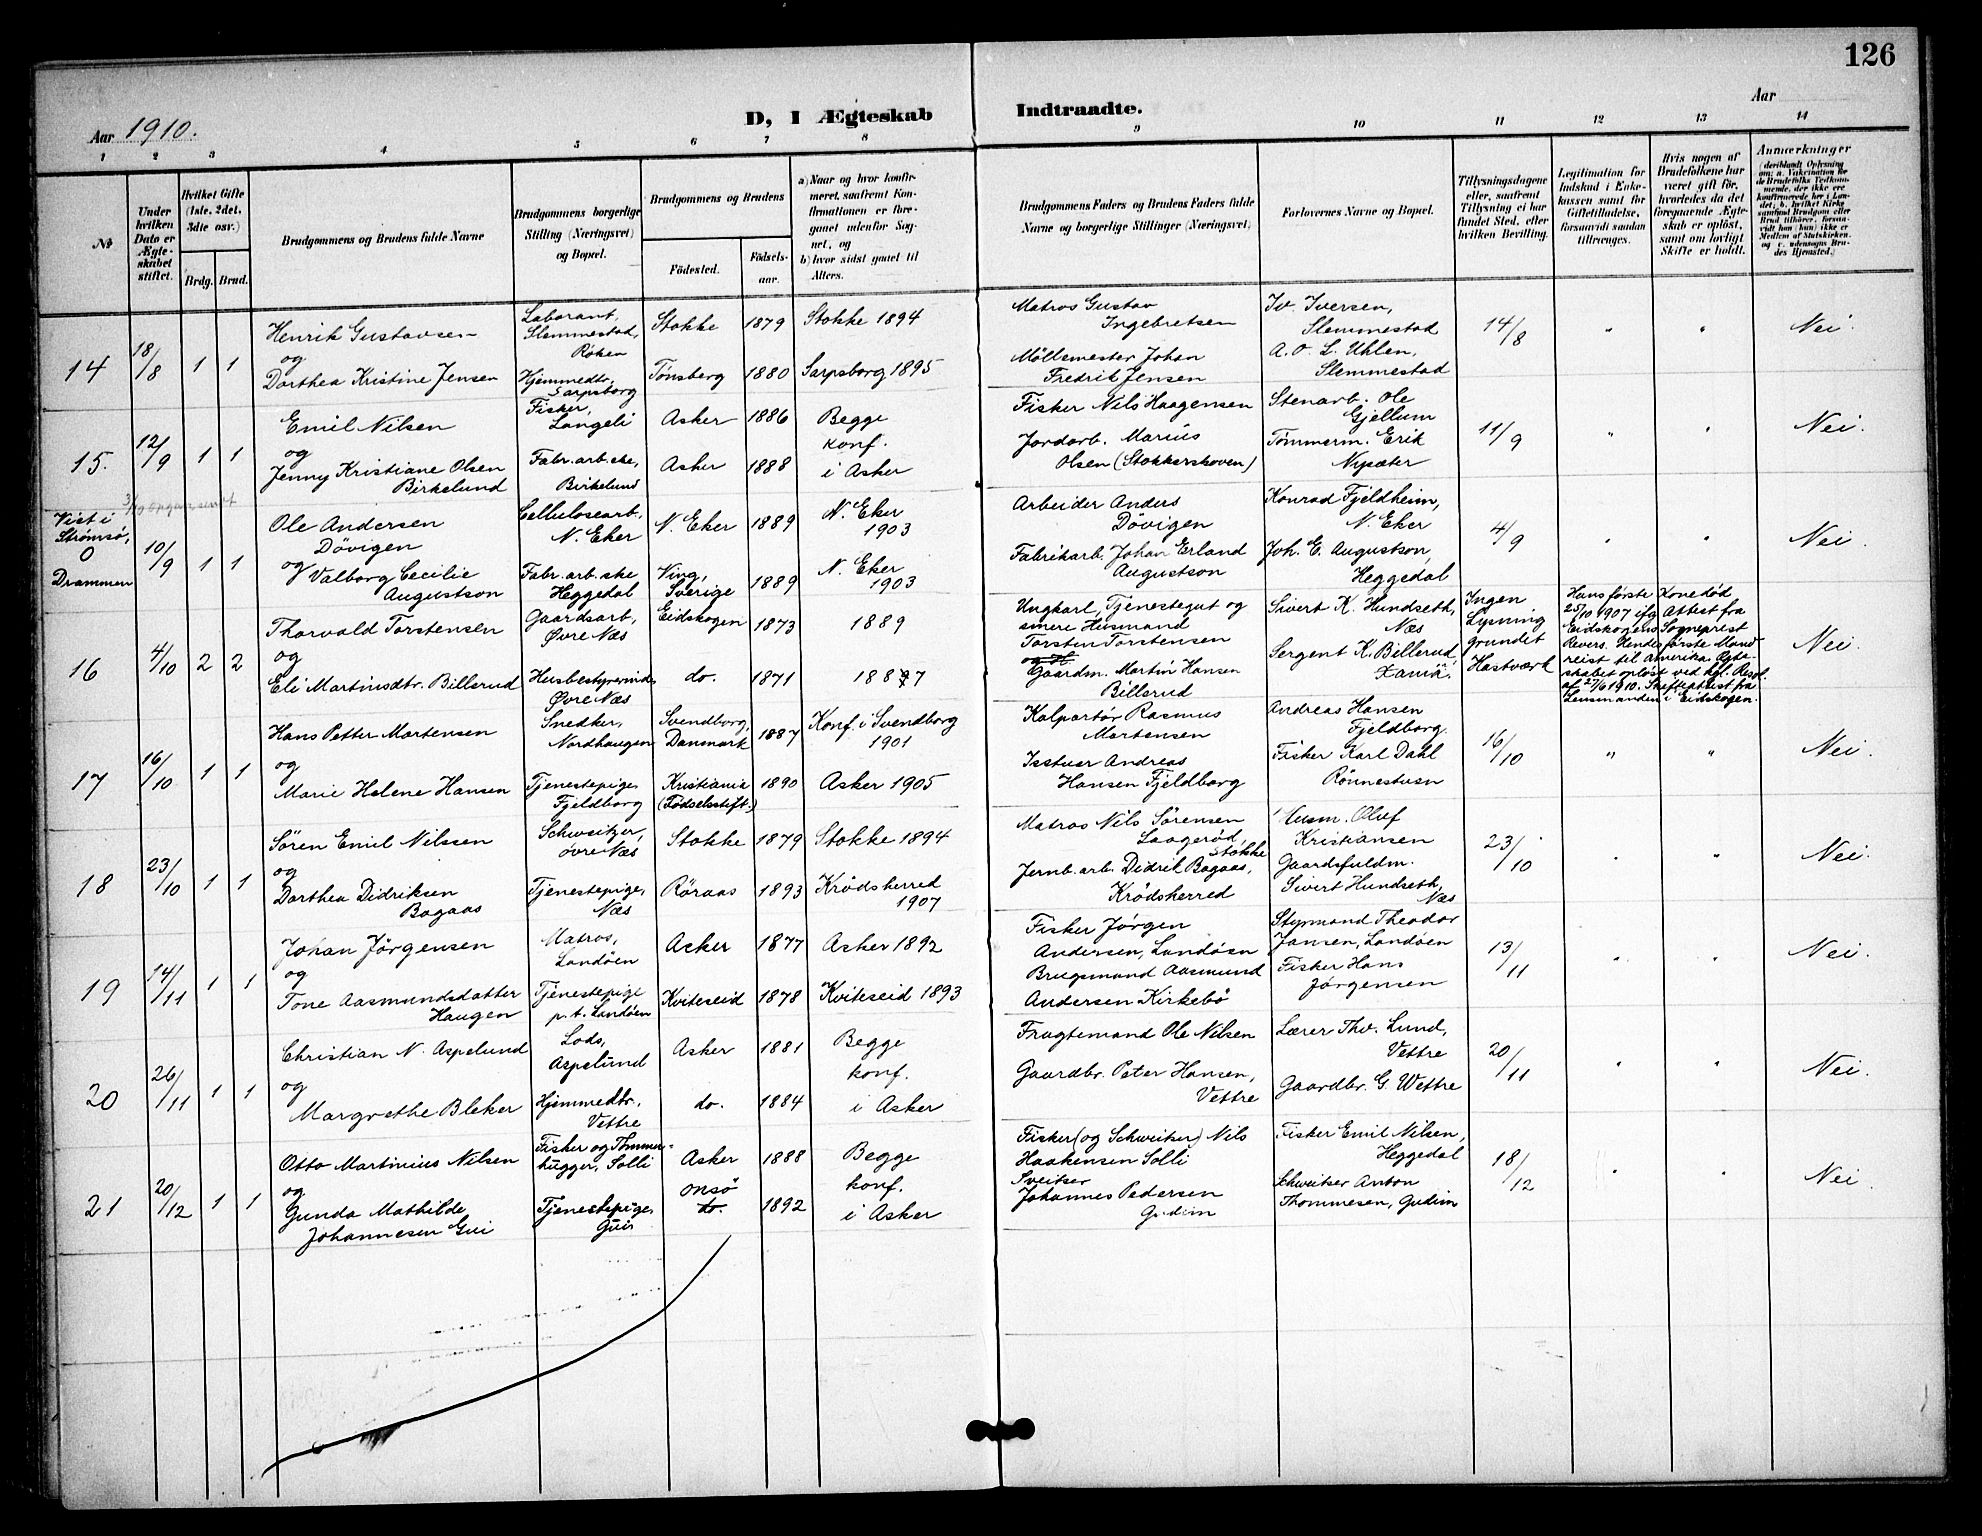 126
Aar 1910.
D, I Ægteskab Indtraadte.
Aar
1 2 3 4 5 6 7 8 9 10 11 12 13 14
№
Under hvilken Dato er Ægteskabet stiftet.
Hvilket Gifte (1ste, 2det, 3die osv.)
Brdg. Brud.
Brudgommens og Brudens fulde Navne
Brudgommens borgerlige Stilling (Næringsvei) og Bopæl.
Brudgommens og Brudens
Födested. Födselsaar.
a) Naar og hvor konfirmeret, saafremt Konfirmationen er foregaaet udenfor Sognet, og
b) hvor sidst gaaet til Alters.
Brudgommens Faders og Brudens Faders fulde Navne og borgerlige Stillinger (Næringsvei)
Forlovernes Navne og Bopæl.
Tillysningsdagene eller, saafremt Tillysning ei har fundet Sted, efter hvilken Bevilling.
Legitimation for Indskud i Enkekassen samt for Giftetilladelse, forsaavidt saadan tiltrænges.
Hvis nogen af Brudefolkene har været gift før, hvorledes da det foregaaende Ægteskab er opløst, samt om lovligt Skifte er holdt.
Anmærkninger
14
18/8
1 1
Henrik Gustavsen
og
Dorthea Kristine Jensen
Laborant,
Slemmestad,
Røken
Hjemmedtr.,
Sarpsborg
Stokke 1879 Stokke 1894
Tönsberg 1880 Sarpsborg 1895
Matros Gustav
Ingebretsen
Möllemester Johan
Fredrik Jensen
Iv. Iversen,
Slemmestad
A. O. L. Uhlen,
Slemmestad
14/8
" "
Nei.
15.
12/9
1 1
Emil Nilsen
og
Jenny Kristiane Olsen
Birkelund
Fisker,
Langeli
Fabr. arb. ske,
Birkelund
Asker 1886
Asker 1888
Begge
konf.
i Asker
Fisker Nils Haagensen
Jordarb. Marius
Olsen (Stokkerskoven)
Stenarb. Ole
Gjellum
Tömmerm. Erik
Nysæter
11/9
" "
Nei.
Viet i
Strømsø,
O
Drammen
10/9
1 1
Ole Andersen
Dövigen
og
Valborg Cecilie
Augustson
Cellulosearb.,
N. Eker
Fabr. arb. ske
Heggedal
N. Eker 1889
Ving,
Sverige 1889
N. Eker
1903
N. Eker
1903
Arbeider Anders
Dövigen
Fabrikarb. Johan Erland
Augustson
Konrad Fjeldheim,
N. Eker
Joh. E. Augustson,
Heggedal
4/9
" "
Nei.
16
4/10
2 2
Thorvald Torstensen
og
Eli Martinsdtr. Billerud
Gaardsarb,
Øvre Næs
Husbestyrerinde
Øvre Næs
Eidskogen 1873 1889
do. 1871 1887
Ungkarl, Tjenestegut og
smere Husmand
Torsten Torstensen
Gaardm. Martin Hansen
Billerud
Sivert K. Hundseth,
Næs
Sergent K. Billerud,
Xania.
Ingen
Lysning
grundet
Hastværk
Hans første Kone død
25/10 1907 ifg. Attest fra
Eidskogens Sogneprest
Revers. Hendes første Mand
reist til Amerika. Ægte-
skabet opløst ved kgl. Resol.
af 27/6 1910. Skifteattest fra
Lensmanden i Eidskogen.
Nei.
17
16/10
1 1
Hans Petter Martensen
og
Marie Helene Hansen
Snedker,
Nordhaugen
Tjenestepige,
Fjeldborg
Svendborg,
Danmark 1887
Kristiania
(Födselsstift.) 1890
Konf. i Svendborg
1901
Asker 1905
Kolportør Rasmus
Martensen
Isstuer Andreas
Hansen Fjeldborg
Andreas Hansen
Fjeldborg.
Fisker Karl Dahl
Rönnestuen
16/10
" "
Nei.
18
23/10
1 1
Sören Emil Nilssen
og
Dorthea Didriksen
Bagaas
Schweitzer,
øvre Næs
Tjenestepige,
Næs
Stokke 1879 Stokke 1894
Röraas 1893 Krödsherred
1907
Matros Nils Sörensen
Laagerød,
Stokke
Jernb. arb. Didrik Bagaas,
Krödsherred
Husm. Oluf
Kristiansen
Gaardsfuldm.
Sivert Hundseth,
Næs
23/10
" "
Nei.
19
14/11
1 1
Johan Jörgensen
og
Tone Aasmundsdatter
Haugen
Matros,
Landöen
Tjenestepige
p. t. Landöen
Asker 1877 Asker 1892
Kviteseid 1878 Kviteseid 1893
Fisker Jörgen
Andersen, Landöen
Brugsmand Aasmund
Andersen Kirkebö
Styrmand Theodor
Jansen, Landöen
Fisker Hans
Jörgensen
13/11
" "
Nei.
20
26/11
1 1
Christian N. Aspelund
og
Margrethe Bleker
Lods,
Aspelund
Hjemmedtr.,
Vettre
Asker 1881
do. 1884
Begge
konf.
i Asker
Fragtemand Ole Nilsen
Gaardbr. Peter Hansen,
Vettre
Lærer Thv. Lund,
Vettre
Gaardbr. G. Wettre
20/11
" "
Nei.
21
20/12
1 1
Otto Martinius Nilsen
og
Gunda Mathilde
Johannesen Gui
Fisker og Tömmer-
hugger, Solli
Tjenestepige,
Gui
Asker 1888
Onsö
do. 1892
Begge
konf.
i Asker
Fisker (og Schweitser) Nils
Haakensen Solli
Sveitser
Johannes Pedersen
Gudim
Fisker Emil Nilsen,
Heggedal
Schweitser Anton
Thommesen, Gudim
18/12
" "
Nei.